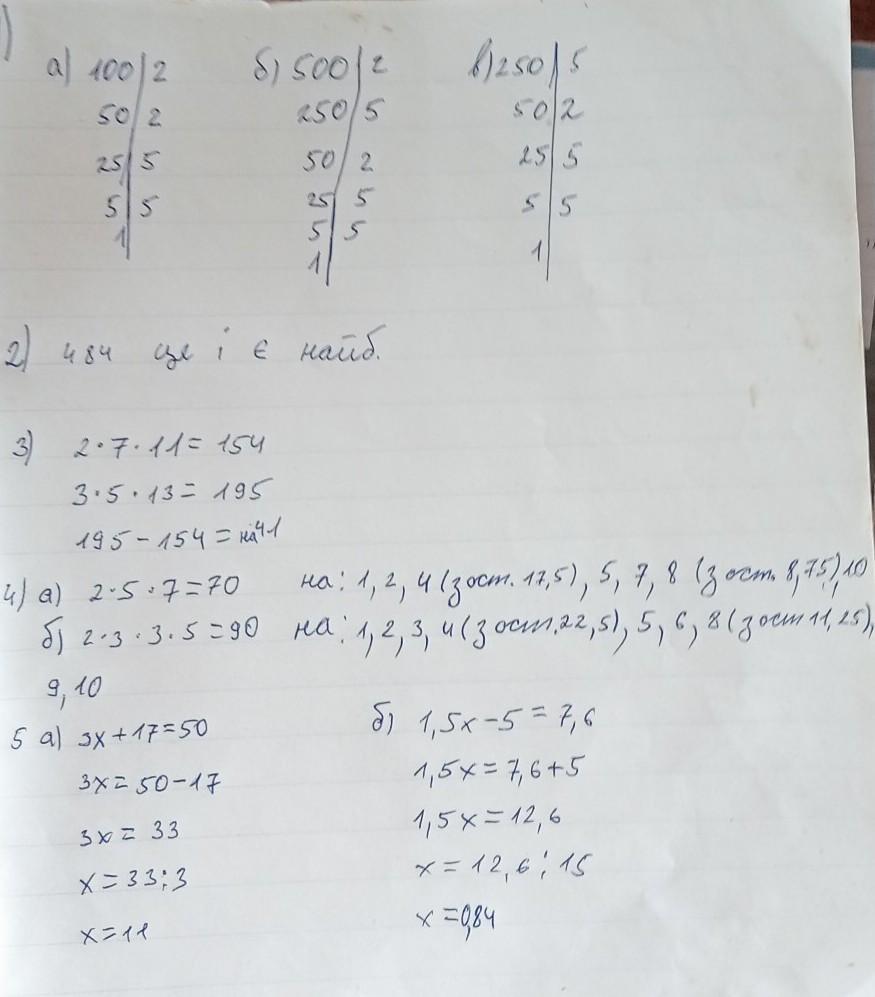 1)
а) 100 | 2 б) 500 | 2 в) 250 | 5
50 | 2 250 | 5 50 | 2
25 | 5 50 | 2 25 | 5
5 | 5 25 | 5 5 | 5
1 | 5 | 5 1 |
1 |
2) 484 це і є найб.
3) 2·7·11=154
3·5·13=195
195-154=на 41
4) а) 2·5·7=70 на: 1, 2, 4 (з ост. 17,5), 5, 7, 8 (з ост. 8,75), 10
б) 2·3·3·5=90 на: 1, 2, 3, 4 (з ост. 22,5), 5, 6, 8 (з ост 11,25),
9, 10
5 а) 3x+17=50 б) 1,5x-5=7,6
3x=50-17 1,5x=7,6+5
3x=33 1,5x=12,6
x=33:3 x=12,6:15
x=11 x=0,84